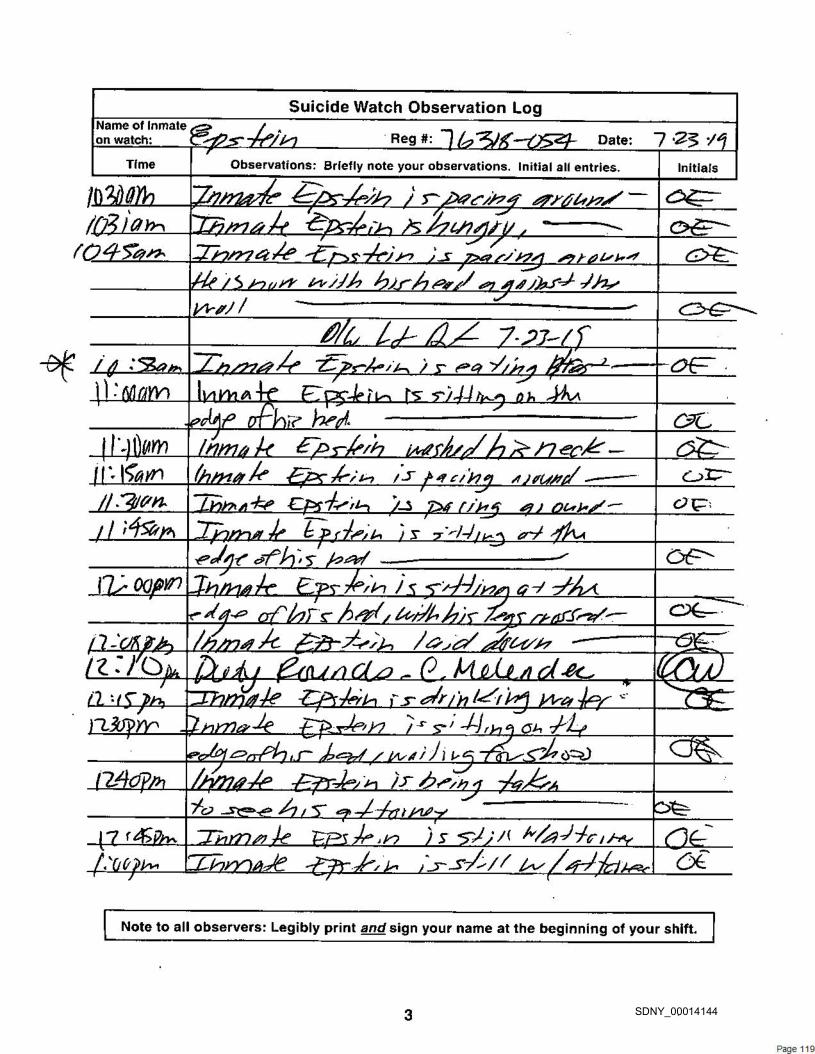 Suicide Watch Observation Log
Name of Inmate on watch: Epstein Reg #: 76318-054 Date: 7·23·19
Time Observations: Briefly note your observations. Initial all entries. Initials
1030am Inmate Epstein is pacing around – OE
1031am Inmate Epstein is hungry, — OE
1045am Inmate Epstein is pacing around OE
He is now with his head against the
wall — OE
Lt 7-23-19
Inmate Epstein is eating — OE
11:00am Inmate Epstein is sitting on the
edge of his bed. — OE
11:10am Inmate Epstein washed his neck – OE
11:15am Inmate Epstein is pacing around — OE
11:30am Inmate Epstein is pacing around – OE
11:45am Inmate Epstein is sitting at the
edge of his bed — OE
12:00pm Inmate Epstein is sitting at the
edge of his bed, with his legs crossed – OE
12:08pm Inmate Epstein laid down — OE
12:10pm Duty Rounds - C. Melendec
12:15pm Inmate Epstein is drinking water OE
1230pm Inmate Epstein is sitting on the
edge of his bed, waiting for OE
1240pm Inmate Epstein is being taken
to see his attorney — OE
12:45pm Inmate Epstein is still w/attorney OE
1:00pm Inmate Epstein is still w/ OE
Note to all observers: Legibly print and sign your name at the beginning of your shift.
3
SDNY_00014144
Page 119